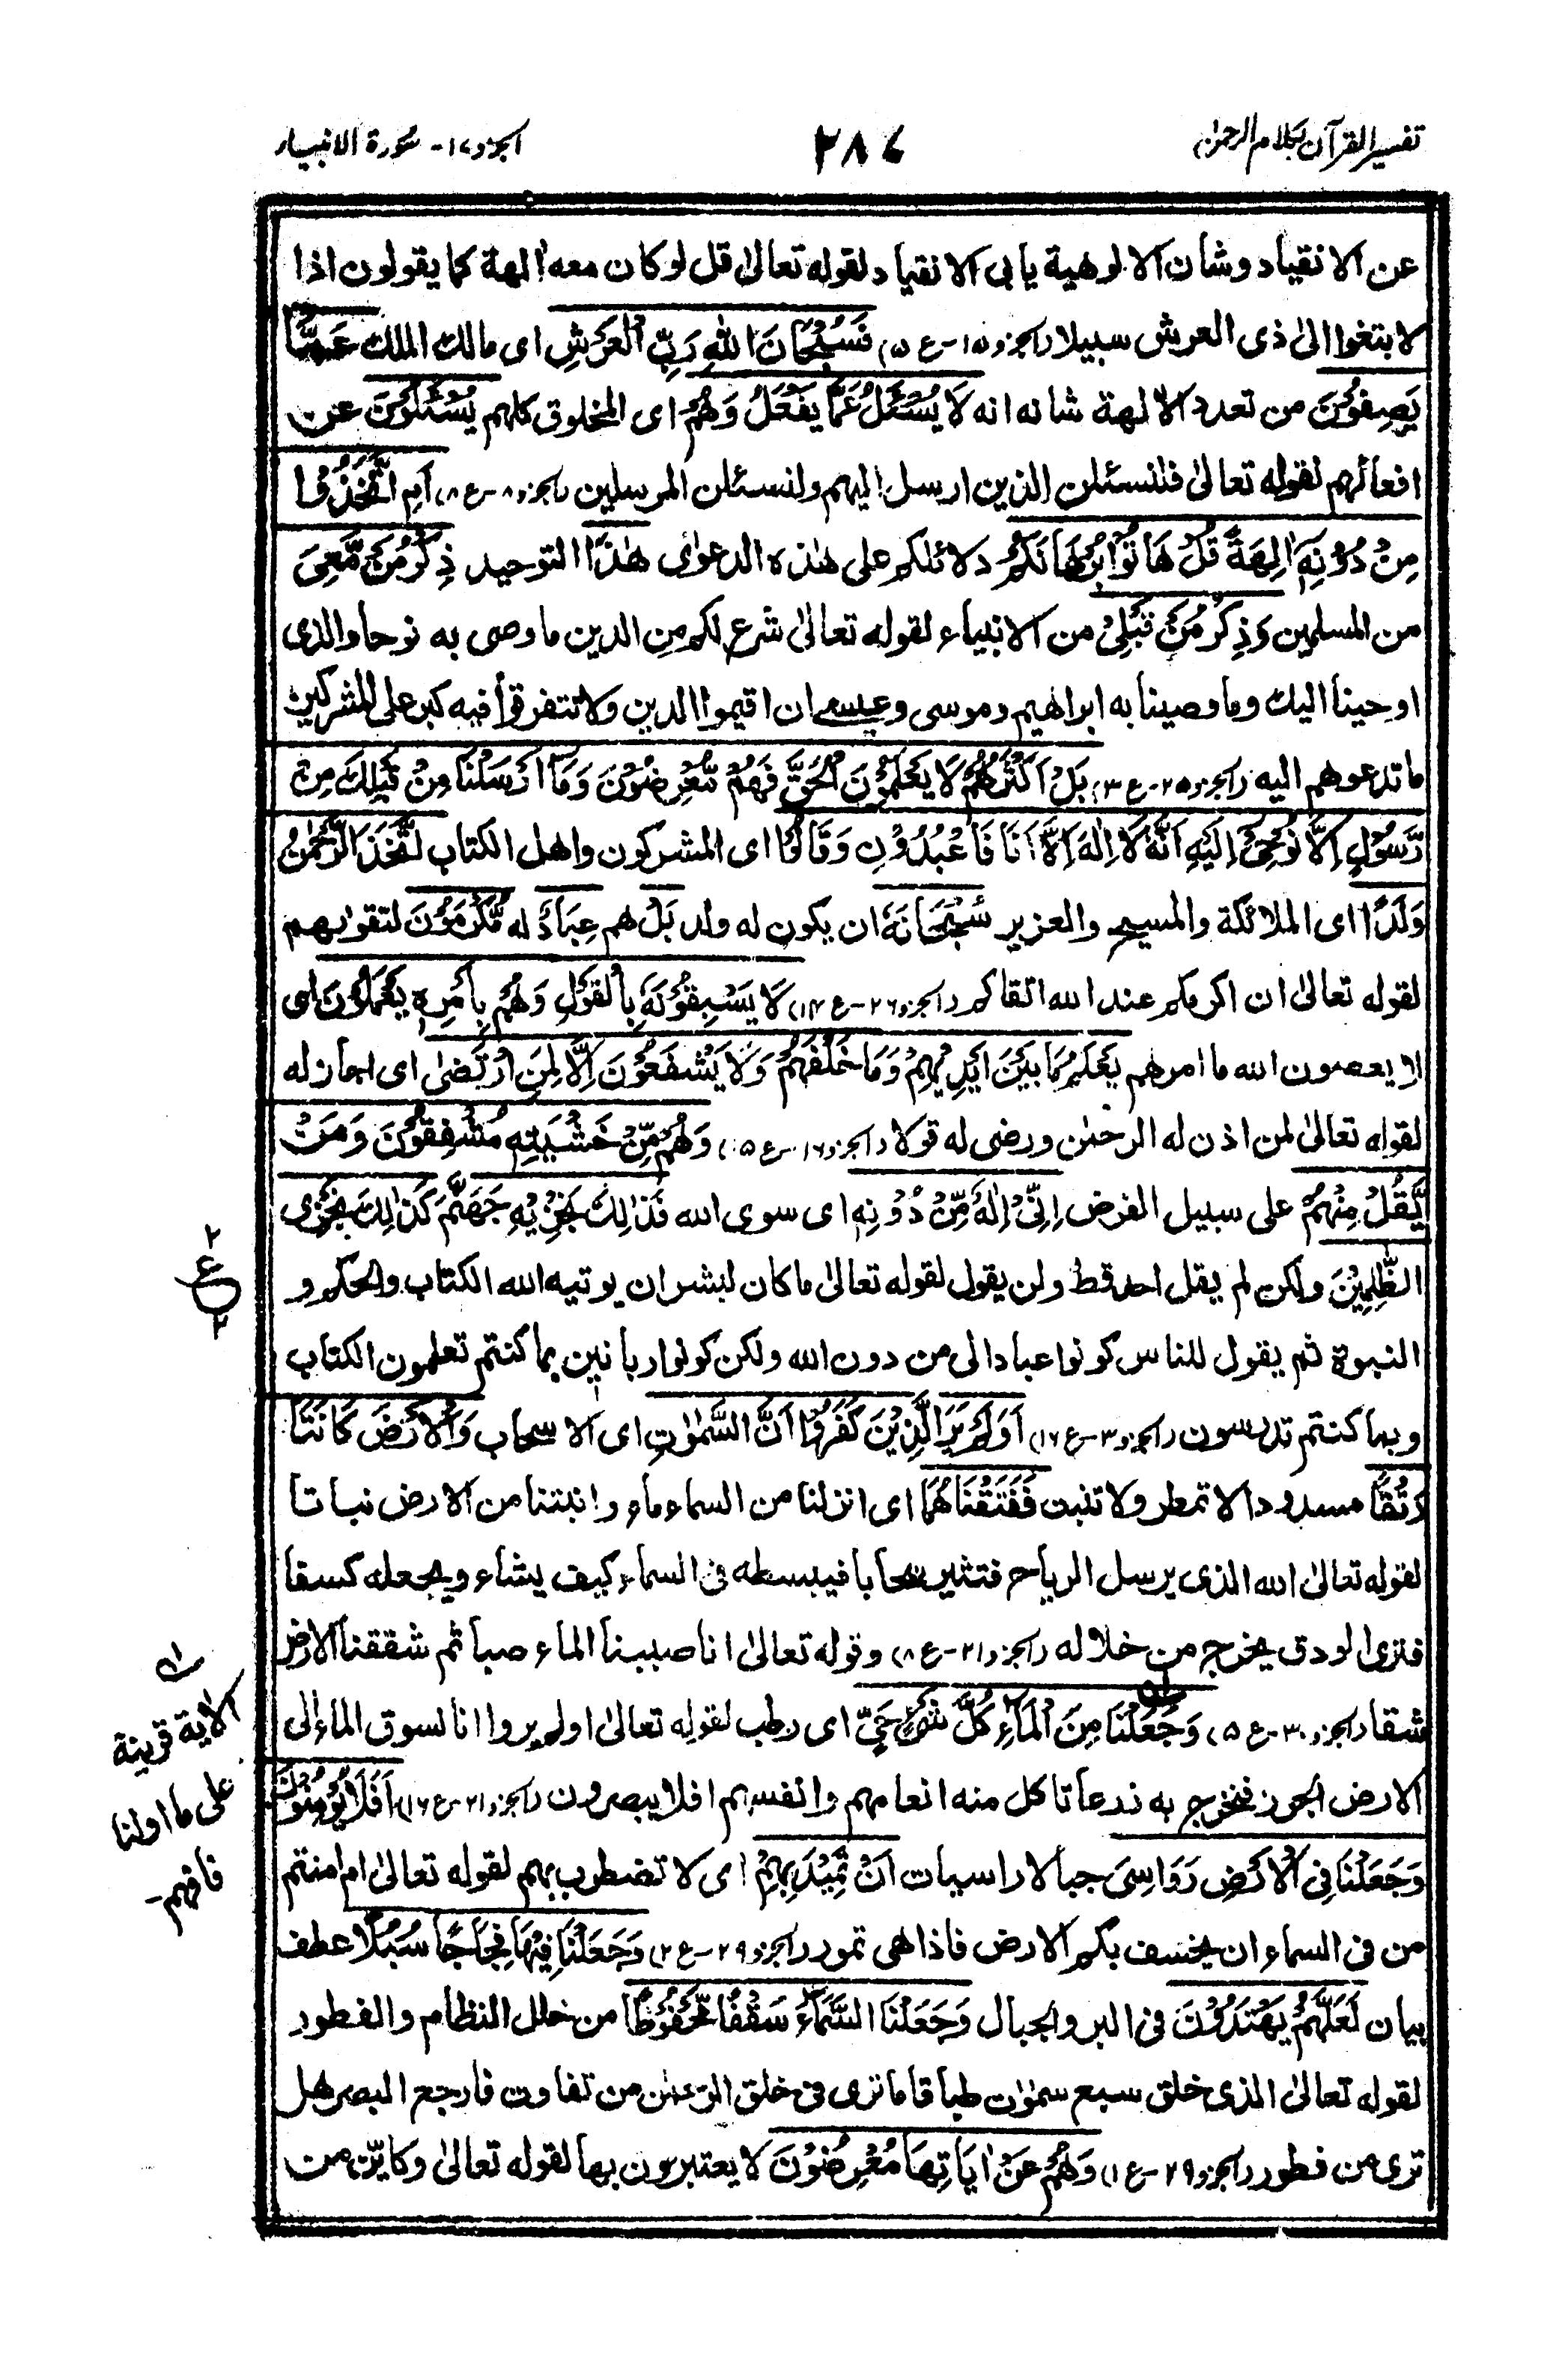 تفسير القرآن بكلام الرحمن
٢٨٧
الجزو ١٧ - سورة الانبياء
عن الانقياد وشان الالوهية يابى الانقياد لقوله تعالىٰ قل لو كان معه اٰلهة كما يقولون اذا
لابتغوا الىٰ ذى العرش سبيلا (الجزو ١٥ - ع ٥) فَسُبْحَانَ اللّٰهِ رَبِّ الْعَرْشِ اى مالك الملك عَمَّا
يَصِفُوْنَ من تعدد الالهة شانه انه لَا يُسْئَلُ عَمَّا يَفْعَلُ وَهُمْ اى المخلوق كلهم يُسْئَلُوْنَ عن
افعالهم لقوله تعالىٰ فلنسئلن الذين ارسل اليهم ولنسئلن المرسلين (الجزو ٨ - ع ٨) اَمِ اتَّخَذُوْا
مِنْ دُوْنِهٖ اٰلِهَةً قُلْ هَاتُوْا بُرْهَانَكُمْ دلائلكم على هٰذه الدعوٰى هٰذَا التوحيد ذِكْرُ مَنْ مَّعِىَ
من المسلمين وَذِكْرُ مَنْ قَبْلِىْ من الانبياء لقوله تعالىٰ شرع لكم من الدين ما وصى به نوحا والذى
اوحينا اليك وما وصينا به ابراهيم وموسى وعيسىٰ ان اقيموا الدين ولا تتفرقوا فيه كبر على المشركين
ما تدعوهم اليه (الجزو ٢٥ - ع ٣) بَلْ اَكْثَرُهُمْ لَا يَعْلَمُوْنَ الْحَقَّ فَهُمْ مُّعْرِضُوْنَ وَمَا اَرْسَلْنَا مِنْ قَبْلِكَ مِنْ
رَّسُوْلٍ اِلَّا نُوْحِىْ اِلَيْهِ اَنَّهٗ لَا اِلٰهَ اِلَّا اَنَا فَاعْبُدُوْنِ وَقَالُوْا اى المشركون واهل الكتاب اتَّخَذَ الرَّحْمٰنُ
وَلَدًا اى الملائكة والمسيح والعزير سُبْحَانَهٗ ان يكون له ولد بَلْ هم عِبَادٌ له مُّكْرَمُوْنَ لتقواهم
لقوله تعالىٰ ان اكرمكم عند الله اتقاكم (الجزو ٢٦ - ع ١٤) لَا يَسْبِقُوْنَهٗ بِالْقَوْلِ وَهُمْ بِاَمْرِهٖ يَعْمَلُوْنَ اى
لا يعصون الله ما امرهم يَعْلَمُ مَا بَيْنَ اَيْدِيْهِمْ وَمَا خَلْفَهُمْ وَلَا يَشْفَعُوْنَ اِلَّا لِمَنِ ارْتَضٰى اى اجاز له
لقوله تعالىٰ لمن اذن له الرحمٰن ورضى له قولا (الجزو ١٦ - ع ٥) وَهُمْ مِّنْ خَشْيَتِهٖ مُشْفِقُوْنَ وَمَنْ
يَّقُلْ مِنْهُمْ على سبيل الفرض اِنِّىْ اِلٰهٌ مِّنْ دُوْنِهٖ اى سوى الله فَذٰلِكَ نَجْزِيْهِ جَهَنَّمَ كَذٰلِكَ نَجْزِى
الظّٰلِمِيْنَ ولكن لم يقل احد قط ولن يقول لقوله تعالىٰ ما كان لبشر ان يوتيه الله الكتاب والحكم و
٢
ع
٢
النبوة ثم يقول للناس كونوا عبادا لى من دون الله ولكن كونوا ربانيين بما كنتم تعلمون الكتاب
وبما كنتم تدرسون (الجزو ٣ - ع ١٦) اَوَلَمْ يَرَ الَّذِيْنَ كَفَرُوْا اَنَّ السَّمٰوٰتِ اى الاسحاب وَالْاَرْضَ كَانَتَا
رَتْقًا مسدودا لا تمطر ولا تنبت فَفَتَقْنَاهُمَا اى انزلنا من السماء ماء وانبتنا من الارض نباتا
لقوله تعالىٰ الله الذى يرسل الرياح فتثير سحابا فيبسطه فى السماء كيف يشاء ويجعله كسفا
فترى الودق يخرج من خلاله (الجزو ٢١ - ع ٨) وقوله تعالىٰ انا صببنا الماء صبا ثم شققنا الارض
شقا (الجزو ٣٠ - ع ٥) وَجَعَلْنَا مِنَ الْمَاءِ كُلَّ شَىْءٍ حَىٍّ اى رطب لقوله تعالىٰ اولم يروا انا نسوق الماء الى
الارض الجرز فنخرج به زرعا تاكل منه انعامهم وانفسهم افلا يبصرون (الجزو ٢١ - ع ١٦) اَفَلَا يُؤْمِنُوْنَ
وَجَعَلْنَا فِى الْاَرْضِ رَوَاسِىَ جبالا راسيات اَنْ تَمِيْدَ بِهِمْ اى لا تضطرب بهم لقوله تعالىٰ ام امنتم
من فى السماء ان يخسف بكم الارض فاذا هى تمور (الجزو ٢٩ - ع ٢) وَجَعَلْنَا فِيْهَا فِجَاجًا سُبُلًا عطف
بيان لَعَلَّهُمْ يَهْتَدُوْنَ فى البر والجبال وَجَعَلْنَا السَّمَاءَ سَقْفًا مَّحْفُوْظًا من خلل النظام والفطور
لقوله تعالىٰ الذى خلق سبع سمٰوٰت طباقا ما ترى فى خلق الرحمٰن من تفاوت فارجع البصر هل
ترى من فطور (الجزو ٢٩ - ع ١) وَهُمْ عَنْ اٰيَاتِهَا مُعْرِضُوْنَ لا يعتبرون بها لقوله تعالىٰ وكايّن من
الاٰية قرينة
على ما اولنا
فافهم -